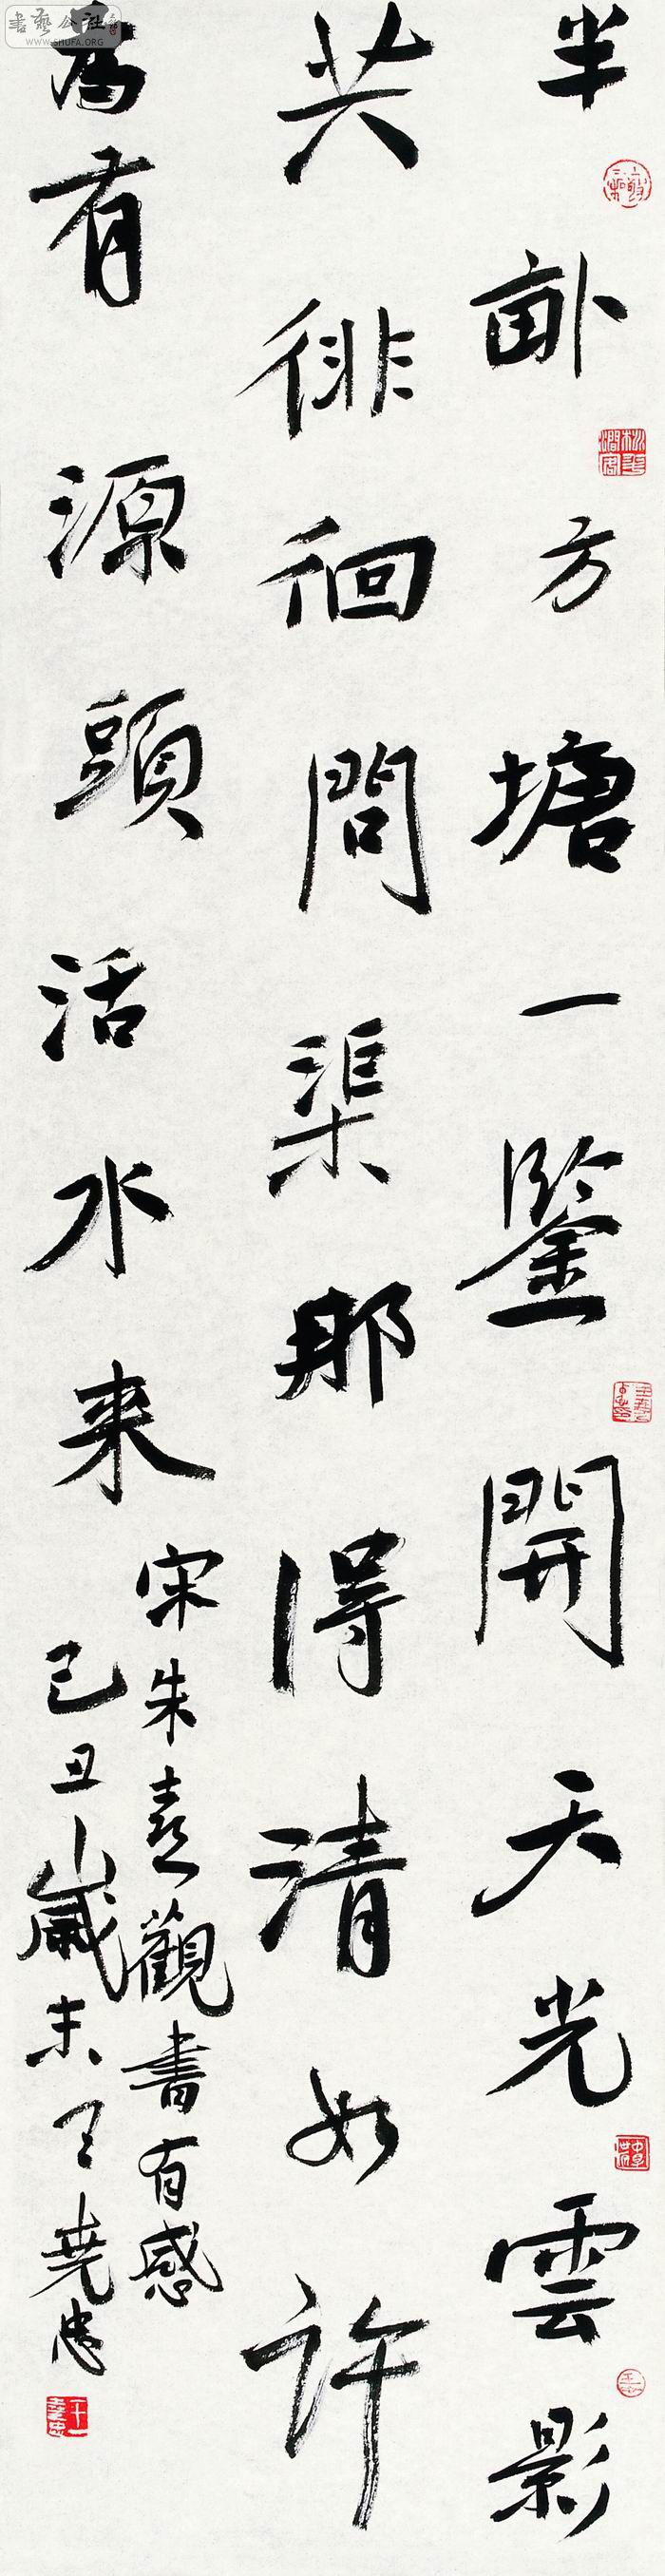 半畝方塘一鑒開天光雲影
共徘徊問渠那得清如許
為有源頭活水来
宋朱熹觀書有感
己丑歲末王堯忠
書藝公社
WWW.SHUFA.ORG